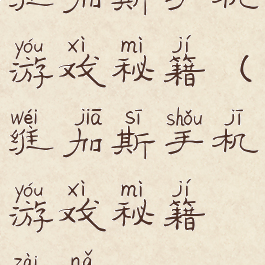 yóu xì mì jí
游戏秘籍(
wéi jiā sī shǒu jī
维加斯手机
yóu xì mì jí
游戏秘籍
zài nǎ